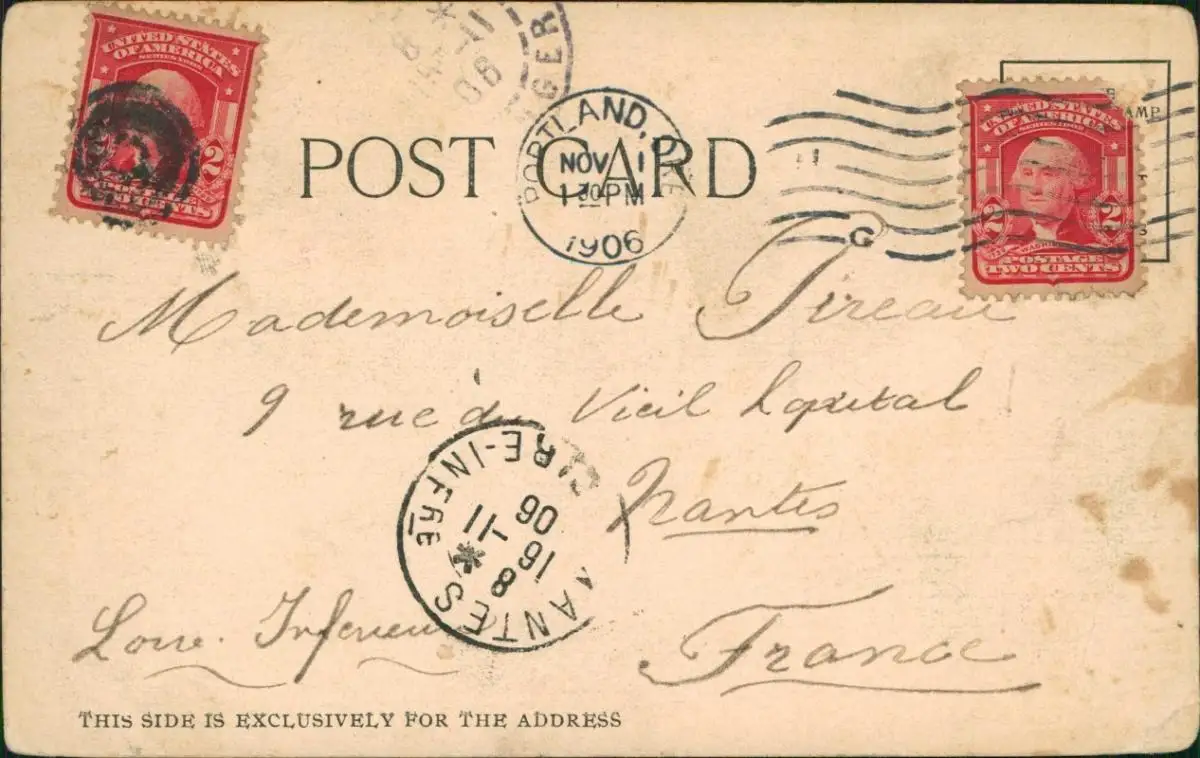 UNITED STATES
OF AMERICA
SERIES 1902
2
CENTS
* 11
06
GER
POST CARD
PORTLAND,
NOV 1
1 30 PM
1906
G
UNITED STATES
OF AMERICA
SERIES 1902
2 2
POSTAGE
TWO CENTS
AMP
Mademoiselle Tireau
9 rue du Vieil hopital
Nantes
NANTES * LOIRE-INFRE
16 8
11
06
Loire Inferieure
France
THIS SIDE IS EXCLUSIVELY FOR THE ADDRESS